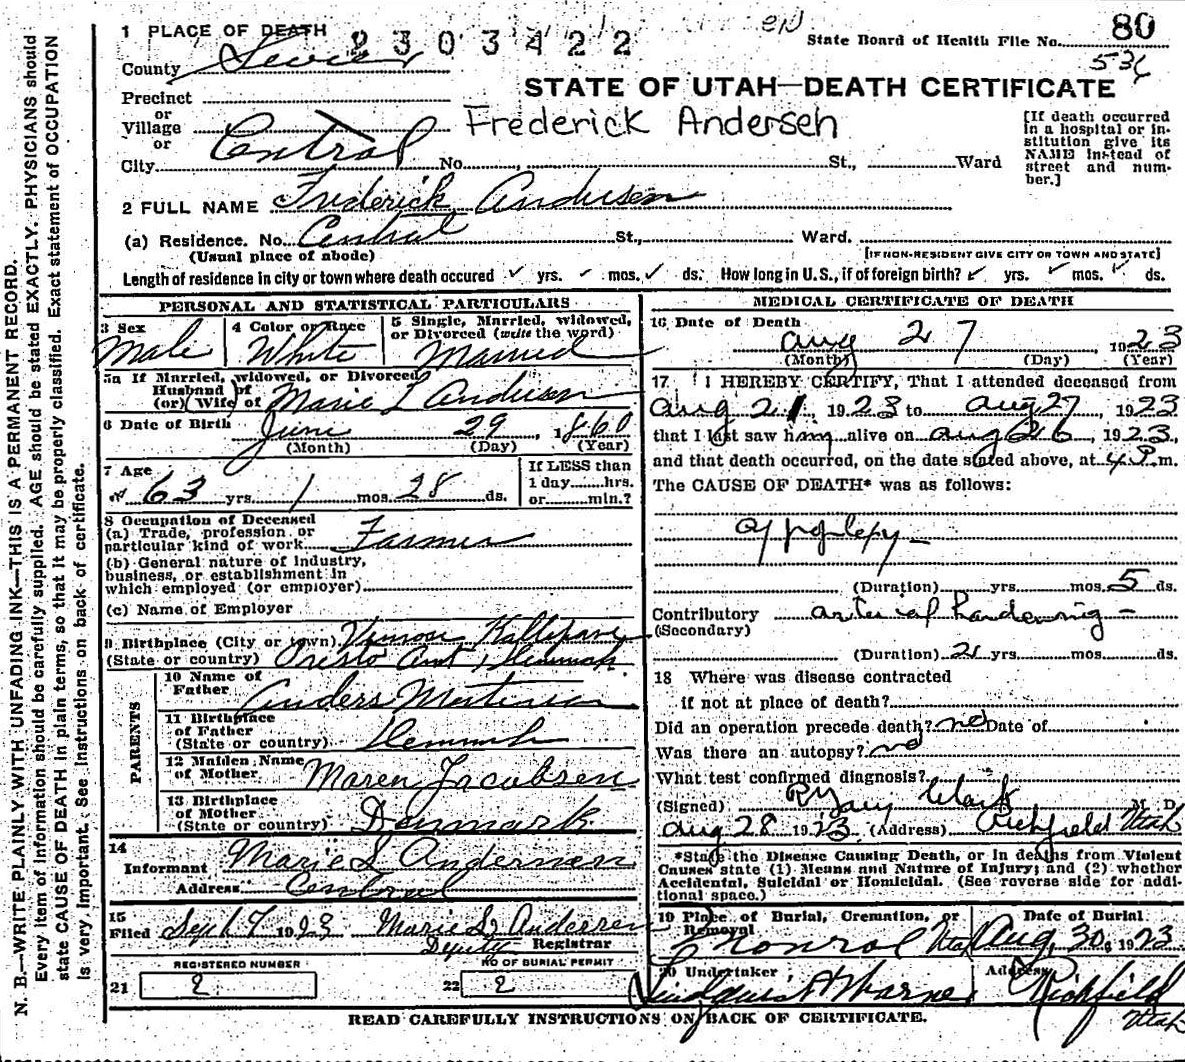 1 PLACE OF DEATH 2303422
State Board of Health File No. 80
536
County Sevier
STATE OF UTAH—DEATH CERTIFICATE
Precinct
or
Village
or
City Central No. St., Ward
Frederick Andersen
[If death occurred in a hospital or institution give its NAME instead of street and number.]
2 FULL NAME Frederick Andersen
(a) Residence. No. Central St., Ward.
(Usual place of abode) [IF NON-RESIDENT GIVE CITY OR TOWN AND STATE]
Length of residence in city or town where death occured ✓ yrs. ✓ mos. ✓ ds. How long in U.S., if of foreign birth? ✓ yrs. ✓ mos. ✓ ds.
PERSONAL AND STATISTICAL PARTICULARS
3 Sex
Male
4 Color or Race
White
5 Single, Married, widowed, or Divorced (write the word)
Married
5a If Married, widowed, or Divorced
Husband of
(or) (Wife) of Marie L Andersen
6 Date of Birth June 29, 1860
(Month) (Day) (Year)
7 Age
63 yrs. 1 mos. 28 ds.
If LESS than
1 day......hrs.
or......min.?
8 Occupation of Deceased
(a) Trade, profession or
particular kind of work Farmer
(b) General nature of industry,
business, or establishment in
which employed (or employer)
(c) Name of Employer
9 Birthplace (City or town)
(State or country)
PARENTS
10 Name of
Father Anders Mortensen
11 Birthplace
of Father
(State or country) Denmark
12 Maiden Name
of Mother Maren Jacobsen
13 Birthplace
of Mother
(State or country) Denmark
14
Informant Marie L Andersen
Address Central
15
Filed Sept 7 1923 Marie L Andersen
Deputy Registrar
REGISTERED NUMBER
21 2
NO OF BURIAL PERMIT
22 2
MEDICAL CERTIFICATE OF DEATH
16 Date of Death
Aug 27 1923
(Month) (Day) (Year)
17 I HEREBY CERTIFY, That I attended deceased from
Aug 21, 1923 to Aug 27, 1923
that I last saw him alive on Aug 26, 1923,
and that death occurred, on the date stated above, at 4 P.m.
The CAUSE OF DEATH* was as follows:
appoplexy—
(Duration) yrs. mos. 5 ds.
Contributory arterial hardening—
(Secondary)
(Duration) 2 yrs. mos. ds.
18 Where was disease contracted
if not at place of death?
Did an operation precede death? no Date of
Was there an autopsy? no
What test confirmed diagnosis?
(Signed) Clark M. D.
Aug 28 1923 (Address) Richfield Utah
*State the Disease Causing Death, or in deaths from Violent
Causes state (1) Means and Nature of Injury; and (2) whether
Accidental, Suicidal or Homicidal. (See reverse side for additional space.)
19 Place of Burial, Cremation, or
Removal
Monroe Utah
Date of Burial
Aug 30, 1923
20 Undertaker
Address
Richfield
Utah
READ CAREFULLY INSTRUCTIONS ON BACK OF CERTIFICATE.
N. B.—WRITE PLAINLY WITH UNFADING INK—THIS IS A PERMANENT RECORD.
Every item of information should be carefully supplied. AGE should be stated EXACTLY. PHYSICIANS should
state CAUSE OF DEATH in plain terms, so that it may be properly classified. Exact statement of OCCUPATION
is very important. See instructions on back of certificate.